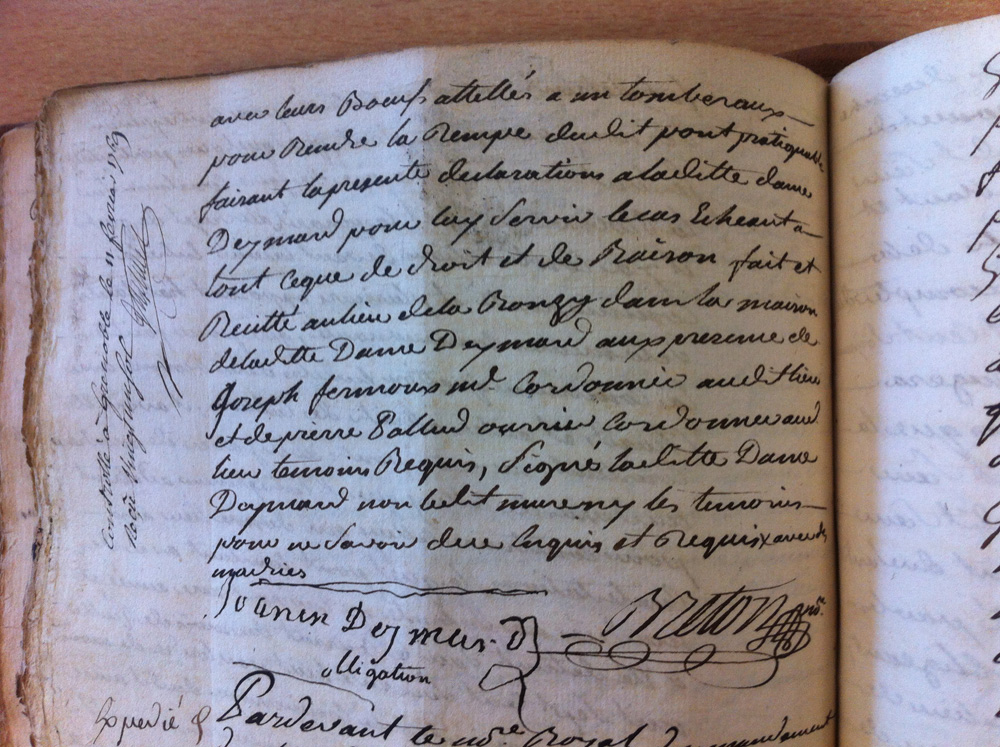 avec leurs Boeufs attellés a un tomberaux
pour Rendre la Rempe dudit pont pratiquable
faisant la presente declarations a laditte dame
Deymard pour luy Servir le cas Echeant a
tout ce que de droit et de Raison fait et
Recitté au lieu de la Ronzy dans la maison
de laditte Dame Deymard aux presence de
Joseph fermoux md Cordonnie audit lieu
et de pierre Pallud ouvrier Cordonnie aud
lieu temoins Requis, Signé laditte Dame
Deymard non ledit mureny les temoins
pour ne Savoir de ce Enquis et Requis avec des
madries
Deymar
Breton nore
obligation
Expedié
Pardevant le nore Royal du mandement
Controllé a grenoble le 11 fevrier 1769
Recu vingt un sol